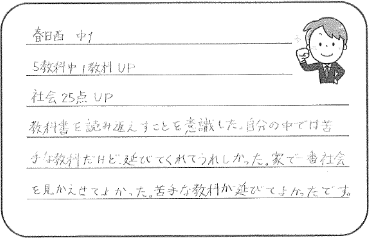 春日西 中1
5教科中1教科UP
社会25点UP
教科書を読み返えすことを意識した。自分の中では苦
手な教科だけど延びてくれてうれしかった。家で一番社会
を見かえせてよかった。苦手な教科が延びてよかったです。